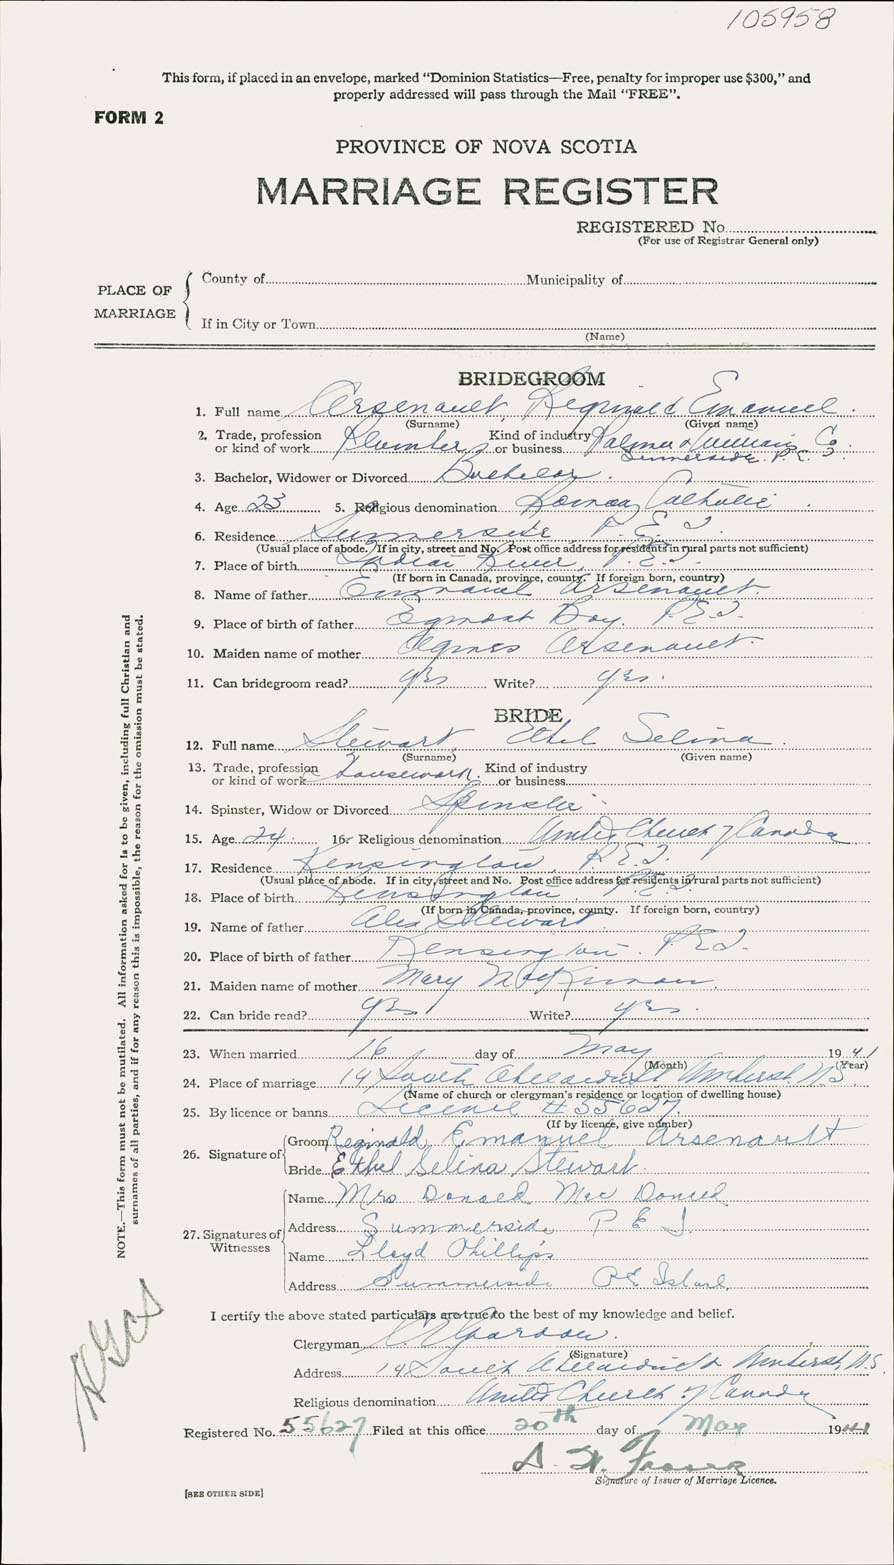 105958
This form, if placed in an envelope, marked "Dominion Statistics—Free, penalty for improper use $300," and
properly addressed will pass through the Mail "FREE".
FORM 2
PROVINCE OF NOVA SCOTIA
MARRIAGE REGISTER
REGISTERED No.
(For use of Registrar General only)
PLACE OF MARRIAGE
County of Municipality of
If in City or Town
(Name)
BRIDEGROOM
1. Full name Arsenault, Reginald Emanuel
(Surname) (Given name)
2. Trade, profession or kind of work Plumber Kind of industry or business Palmer & Co.
Summerside P.E.I.
3. Bachelor, Widower or Divorced Bachelor
4. Age 23 5. Religious denomination Roman Catholic
6. Residence Summerside P.E.I.
(Usual place of abode. If in city, street and No. Post office address for residents in rural parts not sufficient)
7. Place of birth Indian River, P.E.I.
(If born in Canada, province, county. If foreign born, country)
8. Name of father Emanuel Arsenault
9. Place of birth of father Egmont Bay, P.E.I.
10. Maiden name of mother Agnes Arsenault
11. Can bridegroom read? yes Write? yes.
BRIDE
12. Full name Stewart, Ethel Selina
(Surname) (Given name)
13. Trade, profession or kind of work Housework. Kind of industry or business
14. Spinster, Widow or Divorced Spinster
15. Age 24. 16. Religious denomination United Church of Canada
17. Residence Kensington, P.E.I.
(Usual place of abode. If in city, street and No. Post office address for residents in rural parts not sufficient)
18. Place of birth Kensington, P.E.I.
(If born in Canada, province, county. If foreign born, country)
19. Name of father Alex Stewart
20. Place of birth of father Kensington. P.E.I.
21. Maiden name of mother Mary MacKinnon
22. Can bride read? yes Write? yes.
23. When married 16 day of May 1941
(Month) (Year)
24. Place of marriage 14 South Amherst N.S.
(Name of church or clergyman's residence or location of dwelling house)
25. By licence or banns Licence #55627.
(If by licence, give number)
26. Signature of Groom Reginald Emanuel Arsenault
Bride Ethel Selina Stewart
27. Signatures of Witnesses
Name Mrs Donald MacDonald
Address Summerside P E I
Name Lloyd Phillips
Address Summerside P E Island
I certify the above stated particulars are true to the best of my knowledge and belief.
Clergyman
(Signature)
Address 14 South Amherst, N.S.
Religious denomination United Church of Canada
Registered No. 55627 Filed at this office 20th day of May 1941
Signature of Issuer of Marriage Licence.
[SEE OTHER SIDE]
NOTE.—This form must not be mutilated. All information asked for is to be given, including full Christian and
surnames of all parties, and if for any reason this is impossible, the reason for the omission must be stated.